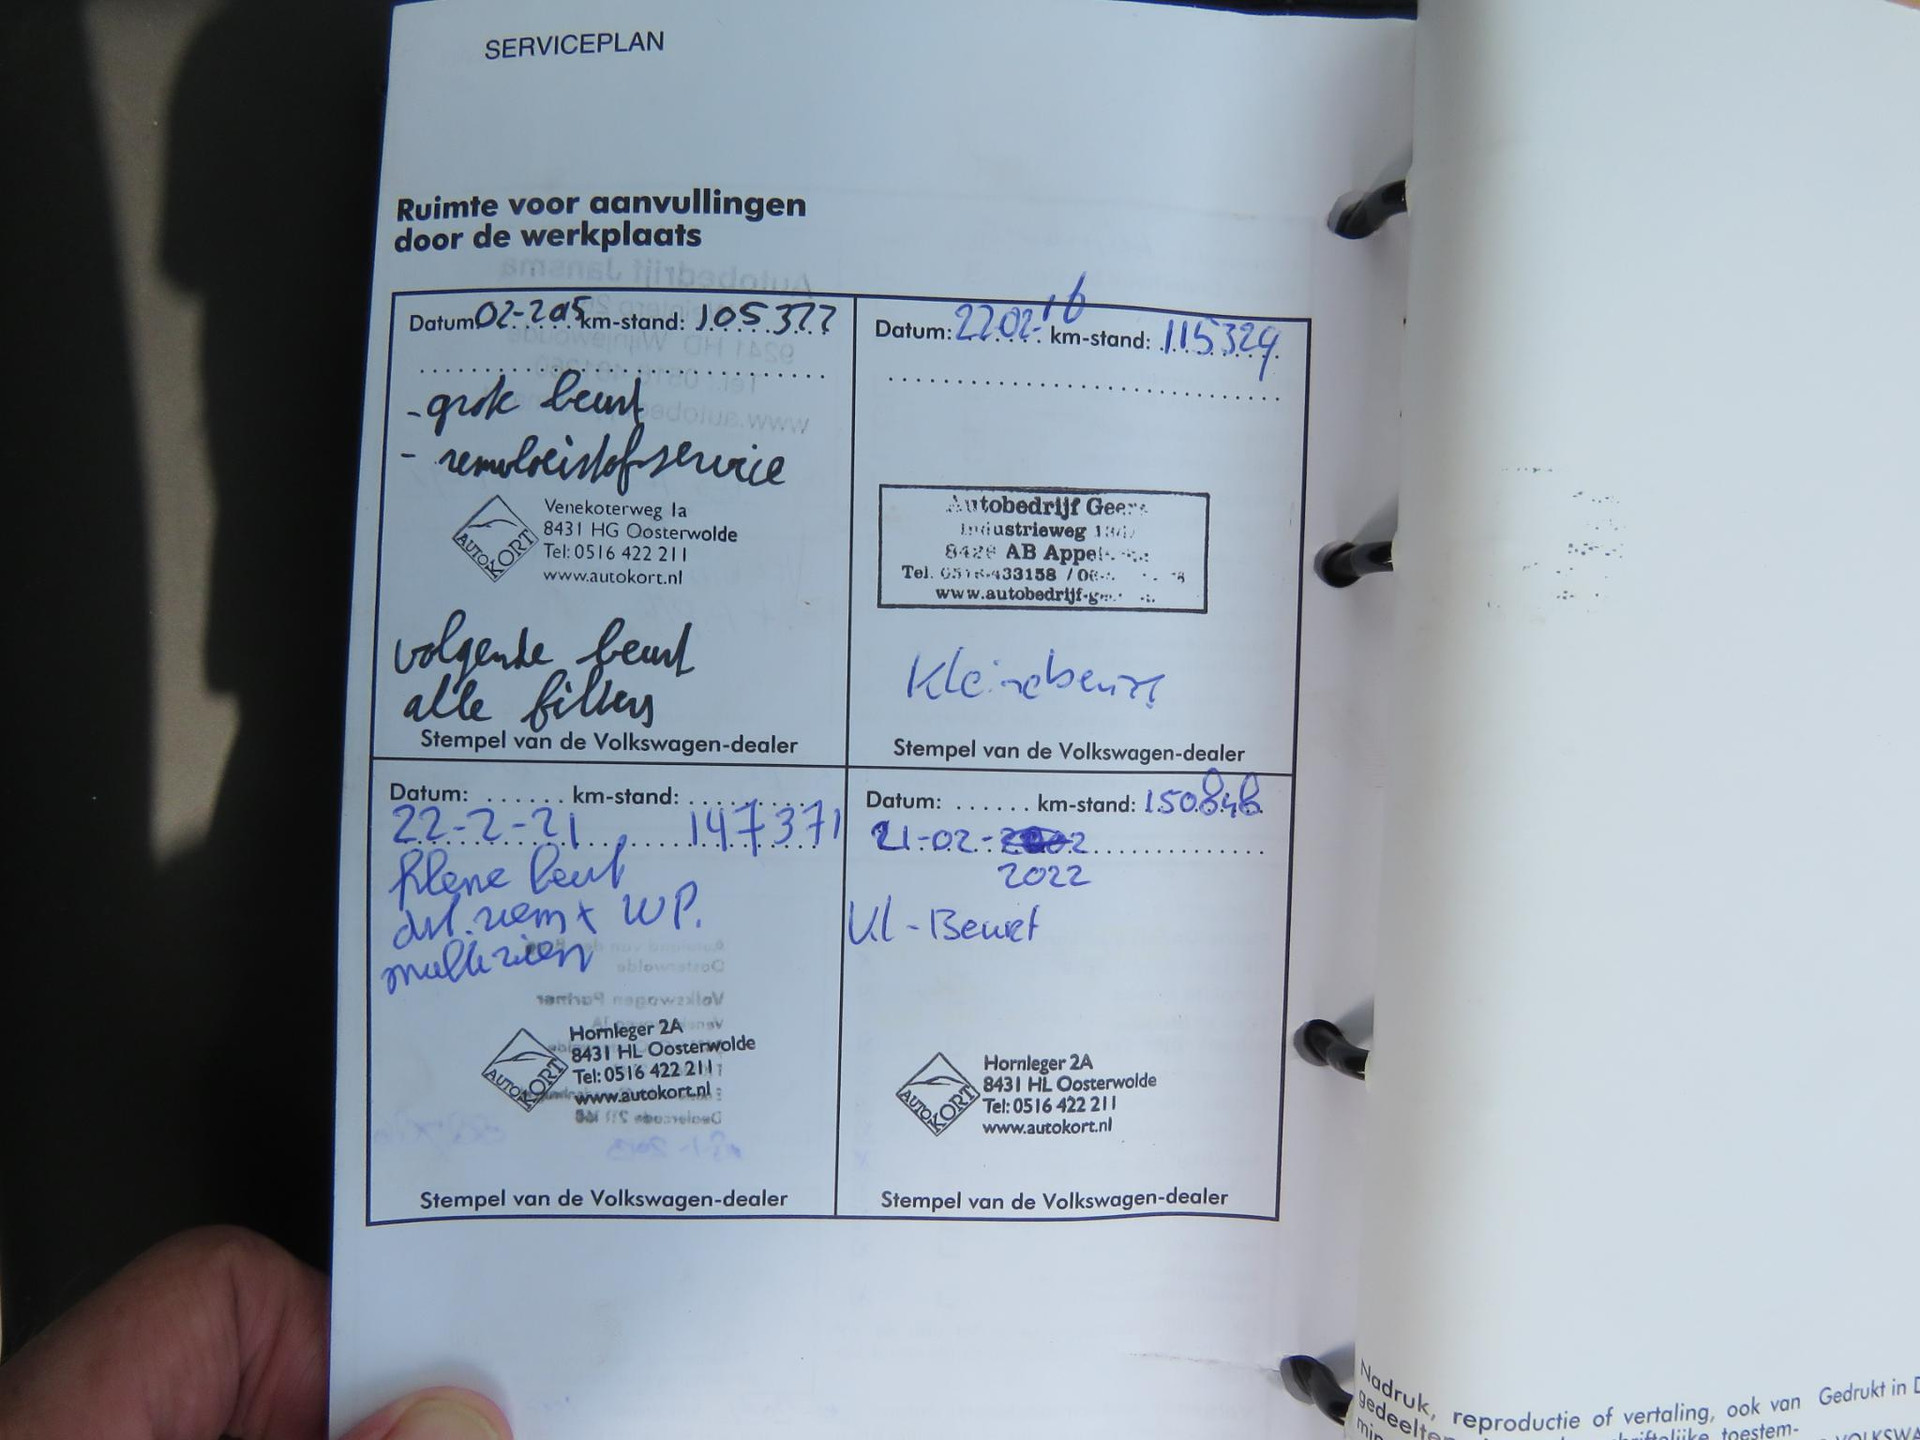 SERVICEPLAN
Ruimte voor aanvullingen
door de werkplaats
Datum 02-2015 km-stand: 105377
- grote beurt
- remvloeistofservice
AUTOKORT
Venekoterweg 1a
8431 HG Oosterwolde
Tel: 0516 422 211
www.autokort.nl
volgende beurt
alle filters
Stempel van de Volkswagen-dealer
Datum: 2202-16 km-stand: 115329
Autobedrijf
Industrieweg
AB
Tel.
Kleinebeurt
Stempel van de Volkswagen-dealer
Datum: ...... km-stand: ..........
22-2-21 147371
Kleine beurt
dist. riem + WP.
multiriem
AUTOKORT
Hornleger 2A
8431 HL Oosterwolde
Tel: 0516 422 211
www.autokort.nl
Stempel van de Volkswagen-dealer
Datum: ...... km-stand: 150848
21-02-
2022
Kl - Beurt
AUTOKORT
Hornleger 2A
8431 HL Oosterwolde
Tel: 0516 422 211
www.autokort.nl
Stempel van de Volkswagen-dealer
Nadruk, reproductie of vertaling, ook van
Gedrukt in
toestem-